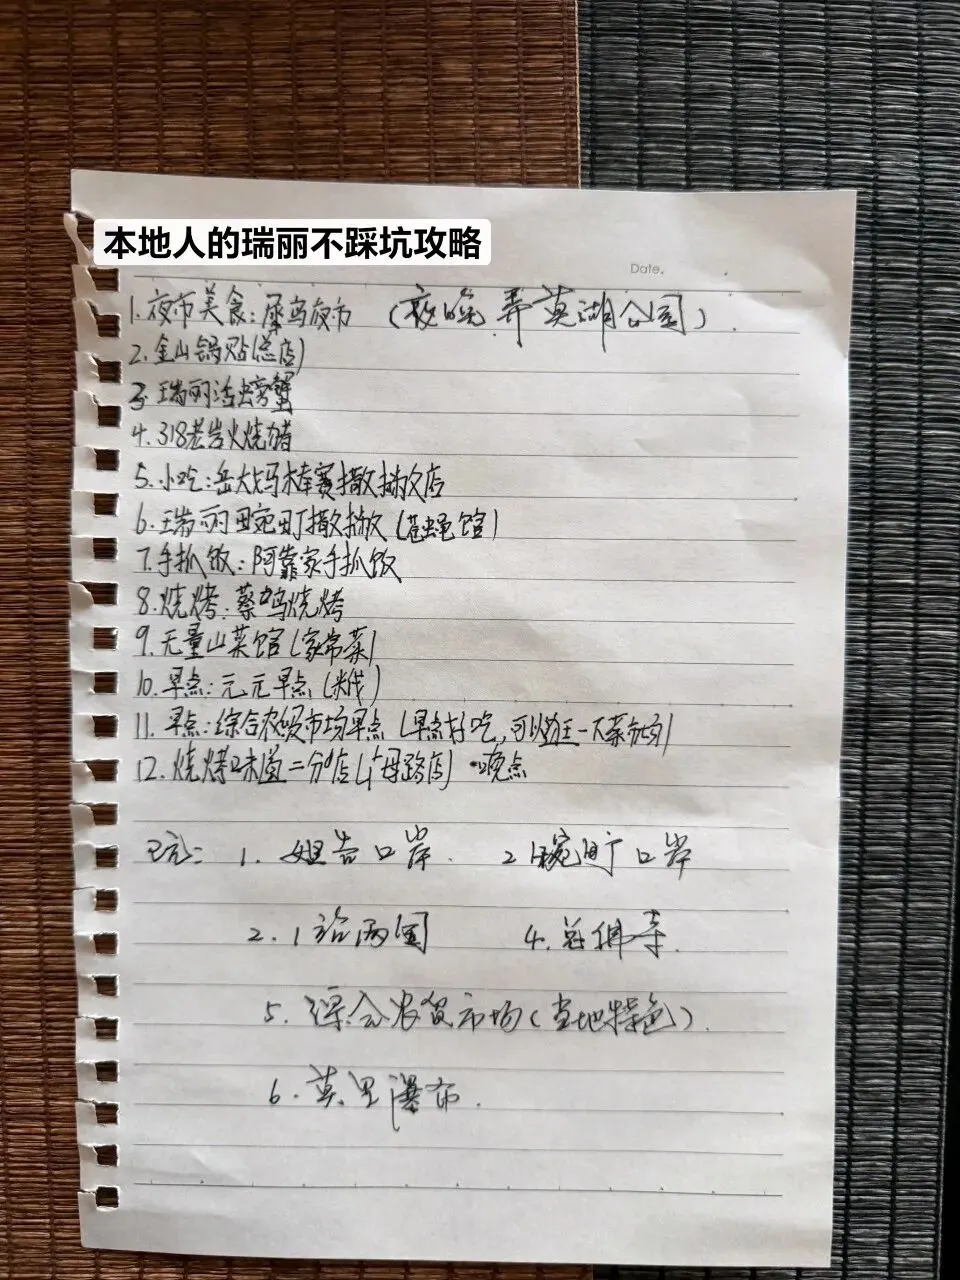 本地人的瑞丽不踩坑攻略
Date.
1.夜市美食:犀鸟夜市 (夜晚弄莫湖公园).
2.金山锅贴(总店)
3.瑞丽活螃蟹
4.318老岩火烧猪
5.小吃:岳大妈木棒赛撒撇店
6.瑞丽畹町撒撇(苍蝇馆)
7.手抓饭:阿靠家手抓饭
8.烧烤:蔡鸣烧烤
9.无量山菜馆(家常菜)
10.早点:元元早点(米线)
11.早点:综合农贸市场早点(早点好吃,可以逛一下菜市场)
12.烧烤味道二分店(十母路店)·晚点
玩: 1.姐告口岸. 2.畹町口岸
2.1寨两国 4.总佛寺.
5.综合农贸市场(当地特色).
6.莫里瀑布.